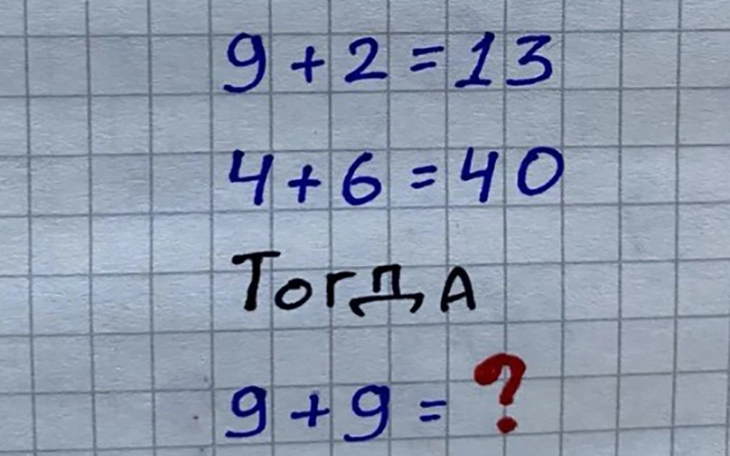 9+2=13
4+6=40
Тогда
9+9=?